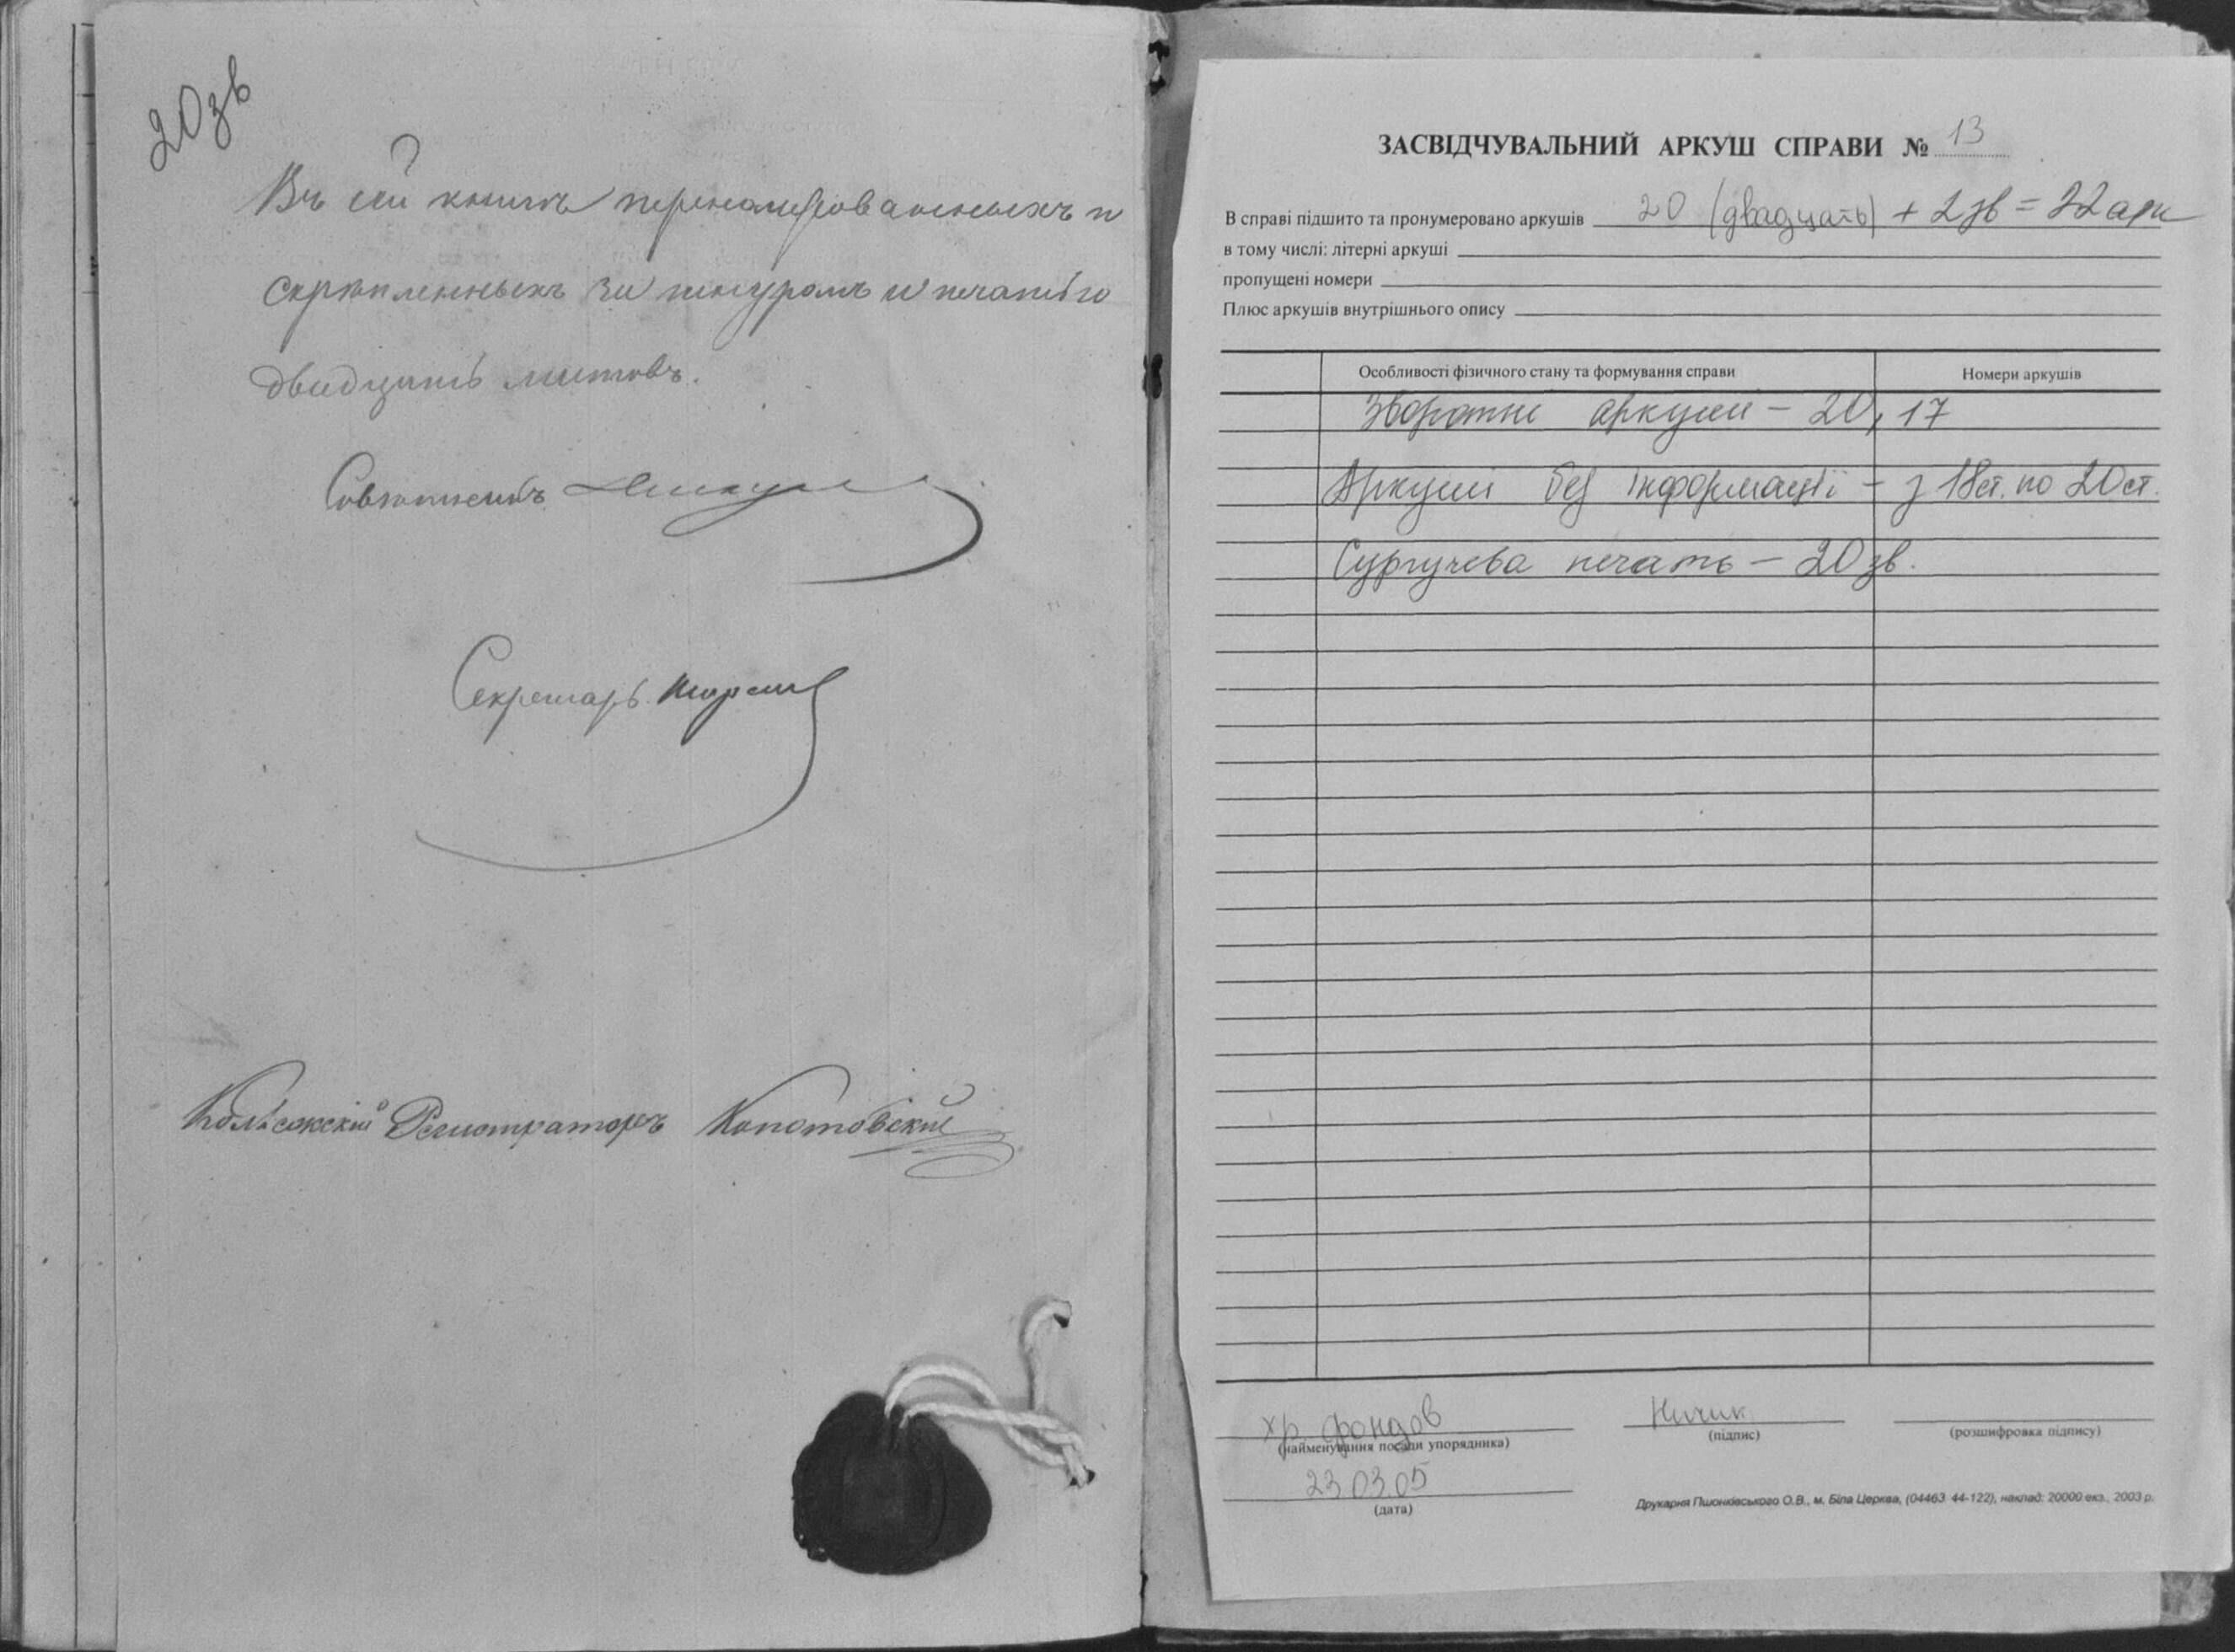 20зв
Въ сей книгѣ перенумерованныхъ и
скрѣпленныхъ за шнуромъ и печатью
двадцать листовъ.
Совѣтникъ
Секретарь
Колѣжскій Регистраторъ Копотовскій
ЗАСВІДЧУВАЛЬНИЙ АРКУШ СПРАВИ № 13
В справі підшито та пронумеровано аркушів 20 (двадцать) + 2 зв = 22 арк
в тому числі: літерні аркуші
пропущені номери
Плюс аркушів внутрішнього опису
Особливості фізичного стану та формування справи Номери аркушів
Зворотні аркуши – 20, 17
Аркуші без інформації – з 18ст. по 20ст.
Сургучева печать – 20 зв.
хр. фондов Ничик
(найменування посади упорядника) (підпис) (розшифровка підпису)
23.03.05
(дата)
Друкарня Пшонківського О.В., м. Біла Церква, (04463 44-122), наклад: 20000 екз., 2003 р.